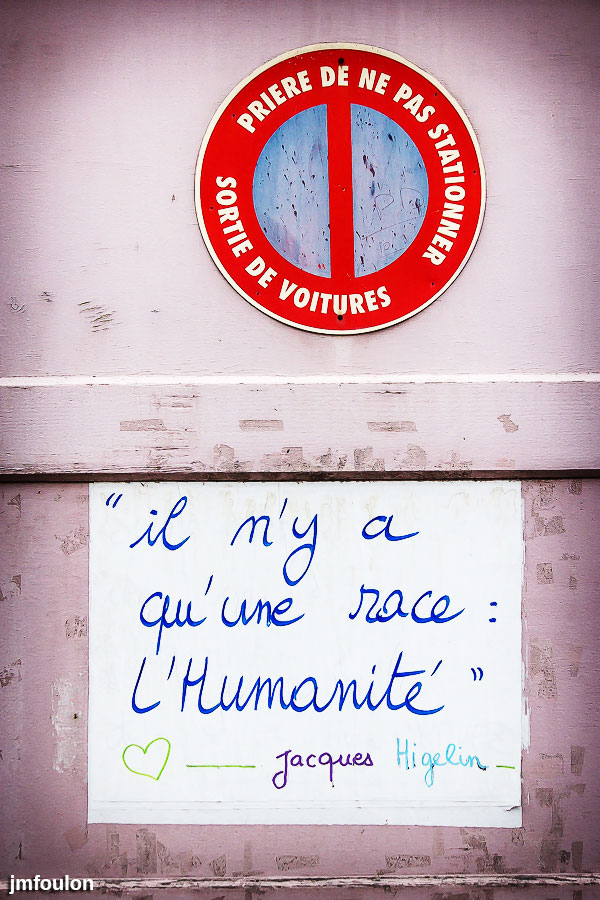 PRIERE DE NE PAS STATIONNER
SORTIE DE VOITURES
"il n'y a
qu'une race :
L'Humanité"
Jacques Higelin
jmfoulon